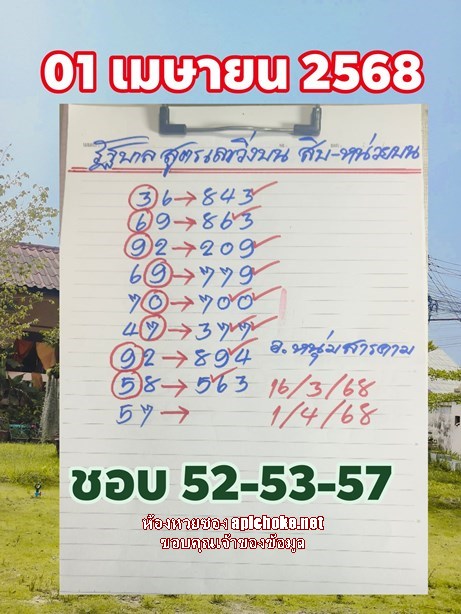 01 เมษายน 2568
รัฐบาล สูตรเลขวิ่งบน สิบ-หน่วยบน
36→843
69→863
92→209
69→779
70→700
47→377
92→894
อ.หนุ่มสารคาม
58→563 16/3/68
57→ 1/4/68
ชอบ 52-53-57
ห้องหวยซอง apichoke.net
ขอบคุณเจ้าของข้อมูล